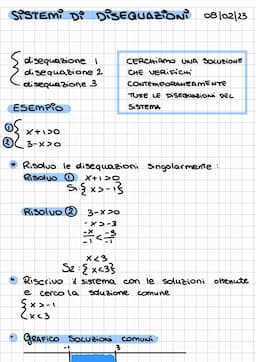 SISTEMI DI DISEQUAZIONI 08/02/23
disequazione 1
disequazione 2
disequazione 3
CERCHIAMO UNA SOLUZIONE
CHE VERIFICHI
CONTEMPORANEAMENTE
TUTTE LE DISEQUAZIONI DEL
SISTEMA
ESEMPIO
① x+1>0
② 3-x>0
• Risolvo le disequazioni singolarmente:
Risolvo ① x+1>0
S1:{x>-1}
Risolvo ② 3-x>0
-x>-3
-x/-1 < -3/-1
x<3
S2:{x<3}
• Riscrivo il sistema con le soluzioni ottenute
e cerco la soluzione comune
{x>-1
x<3
• GRAFICO SOLUZIONI COMUNI
-1 3